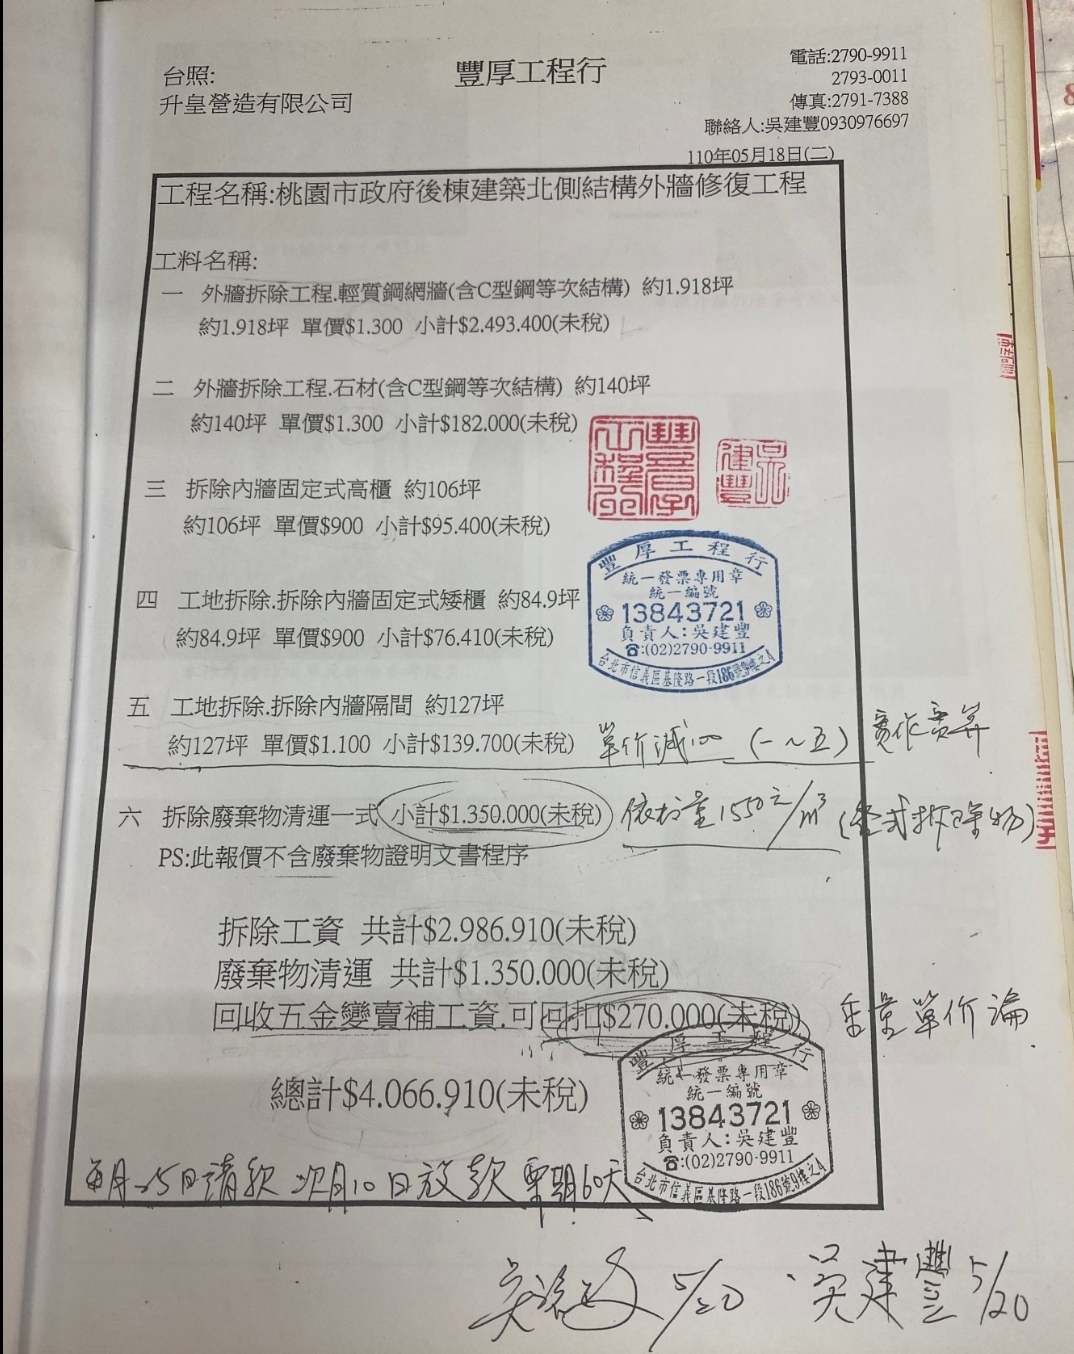 台照:
升皇營造有限公司
豐厚工程行
電話:2790-9911
2793-0011
傳真:2791-7388
聯絡人:吳建豐0930976697
110年05月18日(二)
工程名稱:桃園市政府後棟建築北側結構外牆修復工程
工料名稱:
一 外牆拆除工程.輕質鋼網牆(含C型鋼等次結構) 約1.918坪
約1.918坪 單價$1.300 小計$2.493.400(未稅)
二 外牆拆除工程.石材(含C型鋼等次結構) 約140坪
約140坪 單價$1.300 小計$182.000(未稅)
三 拆除內牆固定式高櫃 約106坪
約106坪 單價$900 小計$95.400(未稅)
豐厚工程行
統一發票專用章
統一編號
13843721
負責人:吳建豐
☎:(02)2790-9911
台北市信義區基隆路一段186號9樓之4
四 工地拆除.拆除內牆固定式矮櫃 約84.9坪
約84.9坪 單價$900 小計$76.410(未稅)
五 工地拆除.拆除內牆隔間 約127坪
約127坪 單價$1.100 小計$139.700(未稅) 單价減100 (一~五) 實作實算
六 拆除廢棄物清運一式 小計$1.350.000(未稅) 1550元/m³
PS:此報價不含廢棄物證明文書程序
拆除工資 共計$2.986.910(未稅)
廢棄物清運 共計$1.350.000(未稅)
回收五金變賣補工資.可回扣$270.000(未稅) 重量單价論
總計$4.066.910(未稅)
豐厚工程行
統一發票專用章
統一編號
13843721
負責人:吳建豐
☎:(02)2790-9911
台北市信義區基隆路一段186號9樓之4
每月25日請款 次月10日放款 票期60天
5/20 吳建豐 5/20